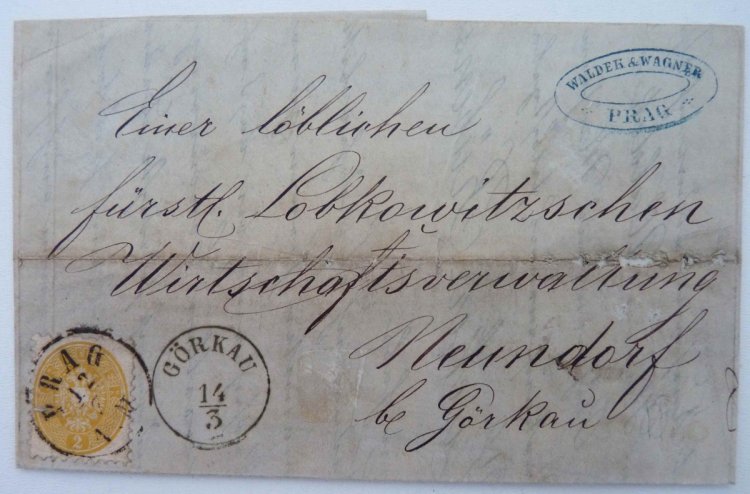 WALDEK & WAGNER
PRAG
Einer löblichen
fürstl. Lobkowitzschen
Wirtschaftsverwaltung
Neundorf
be Görkau
PRAG
12
2
GÖRKAU
14
3